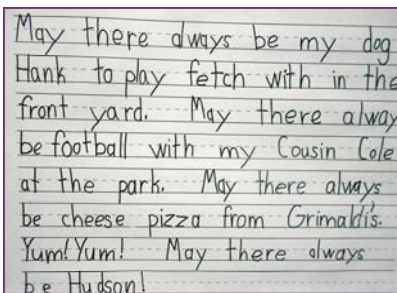 May there always be my dog
Hank to play fetch with in the
front yard. May there alway
be football with my Cousin Cole
at the park. May there always
be cheese pizza from Grimaldi's.
Yum! Yum! May there always
be Hudson!